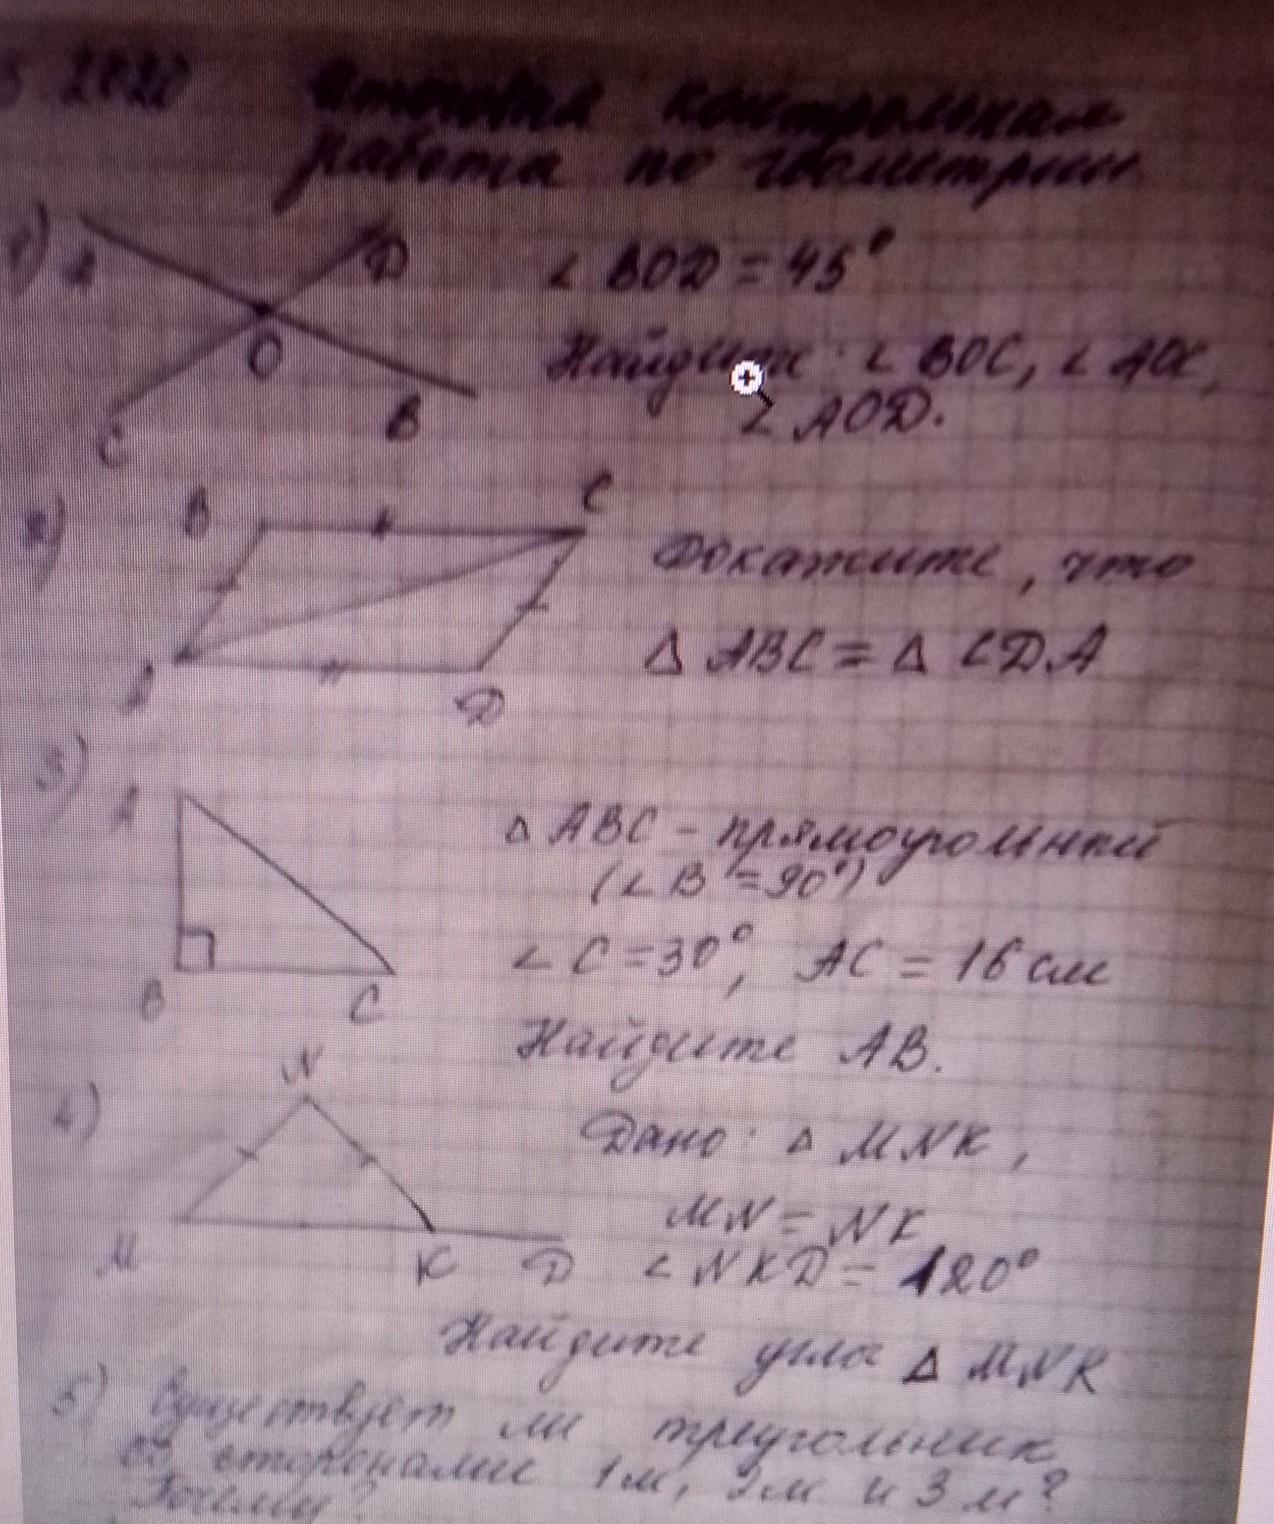 5.2020 Итоговая контрольная
работа по геометрии
1) A D ∠ BOD = 45°
O Найдите: ∠ BOC, ∠ AOC,
C B ∠ AOD.
2) B C
Докажите, что
Δ ABC = Δ CDA
A D
3) A
Δ ABC - прямоугольный
(∠ B = 90°)
∠ C = 30°, AC = 16 см
B C
Найдите AB.
4) N
Дано: Δ MNK,
MN = NK
M K D ∠ NKD = 120°
Найдите углы Δ MNK
5) Существует ли треугольник
со сторонами 1м, 2м и 3м?
Почему?